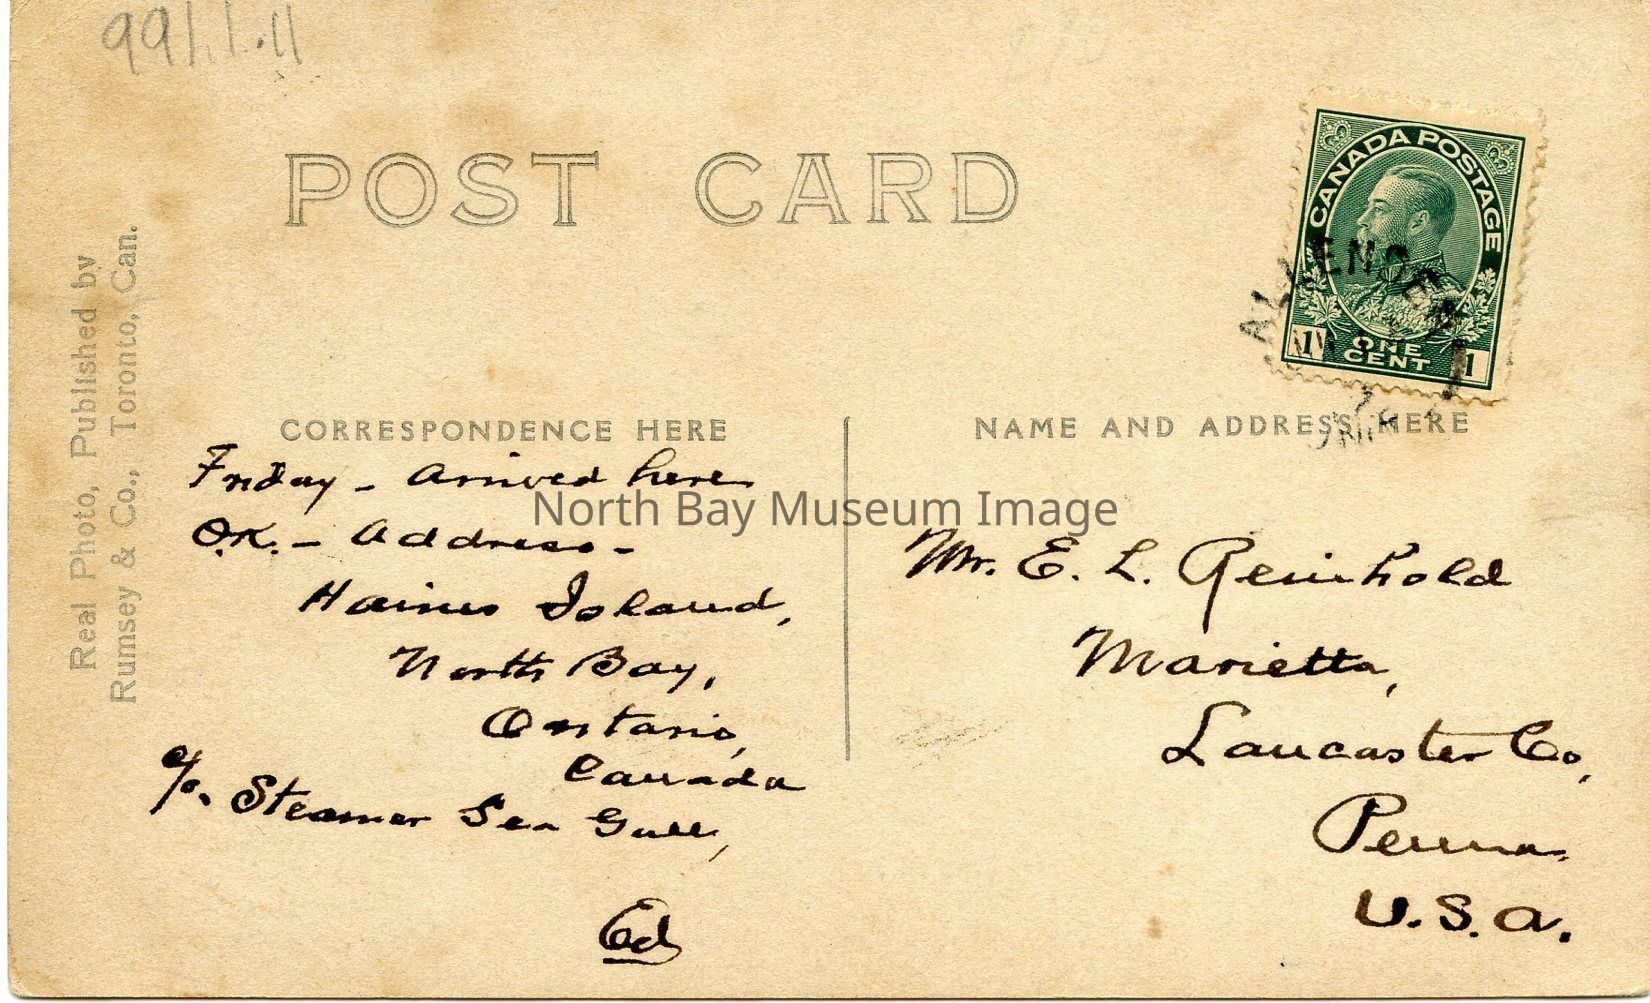 991.1.11
POST CARD
CANADA POSTAGE
1 ONE CENT 1
Real Photo, Published by
Rumsey & Co., Toronto, Can.
CORRESPONDENCE HERE
Friday - Arrived here
O.K. - Address -
Haines Island,
North Bay,
Ontario,
Canada
c/o. Steamer Sea Gull,
Ed
NAME AND ADDRESS HERE
Mr. E. L. Reinhold
Marietta,
Lancaster Co,
Penna.
U.S.A.
North Bay Museum Image